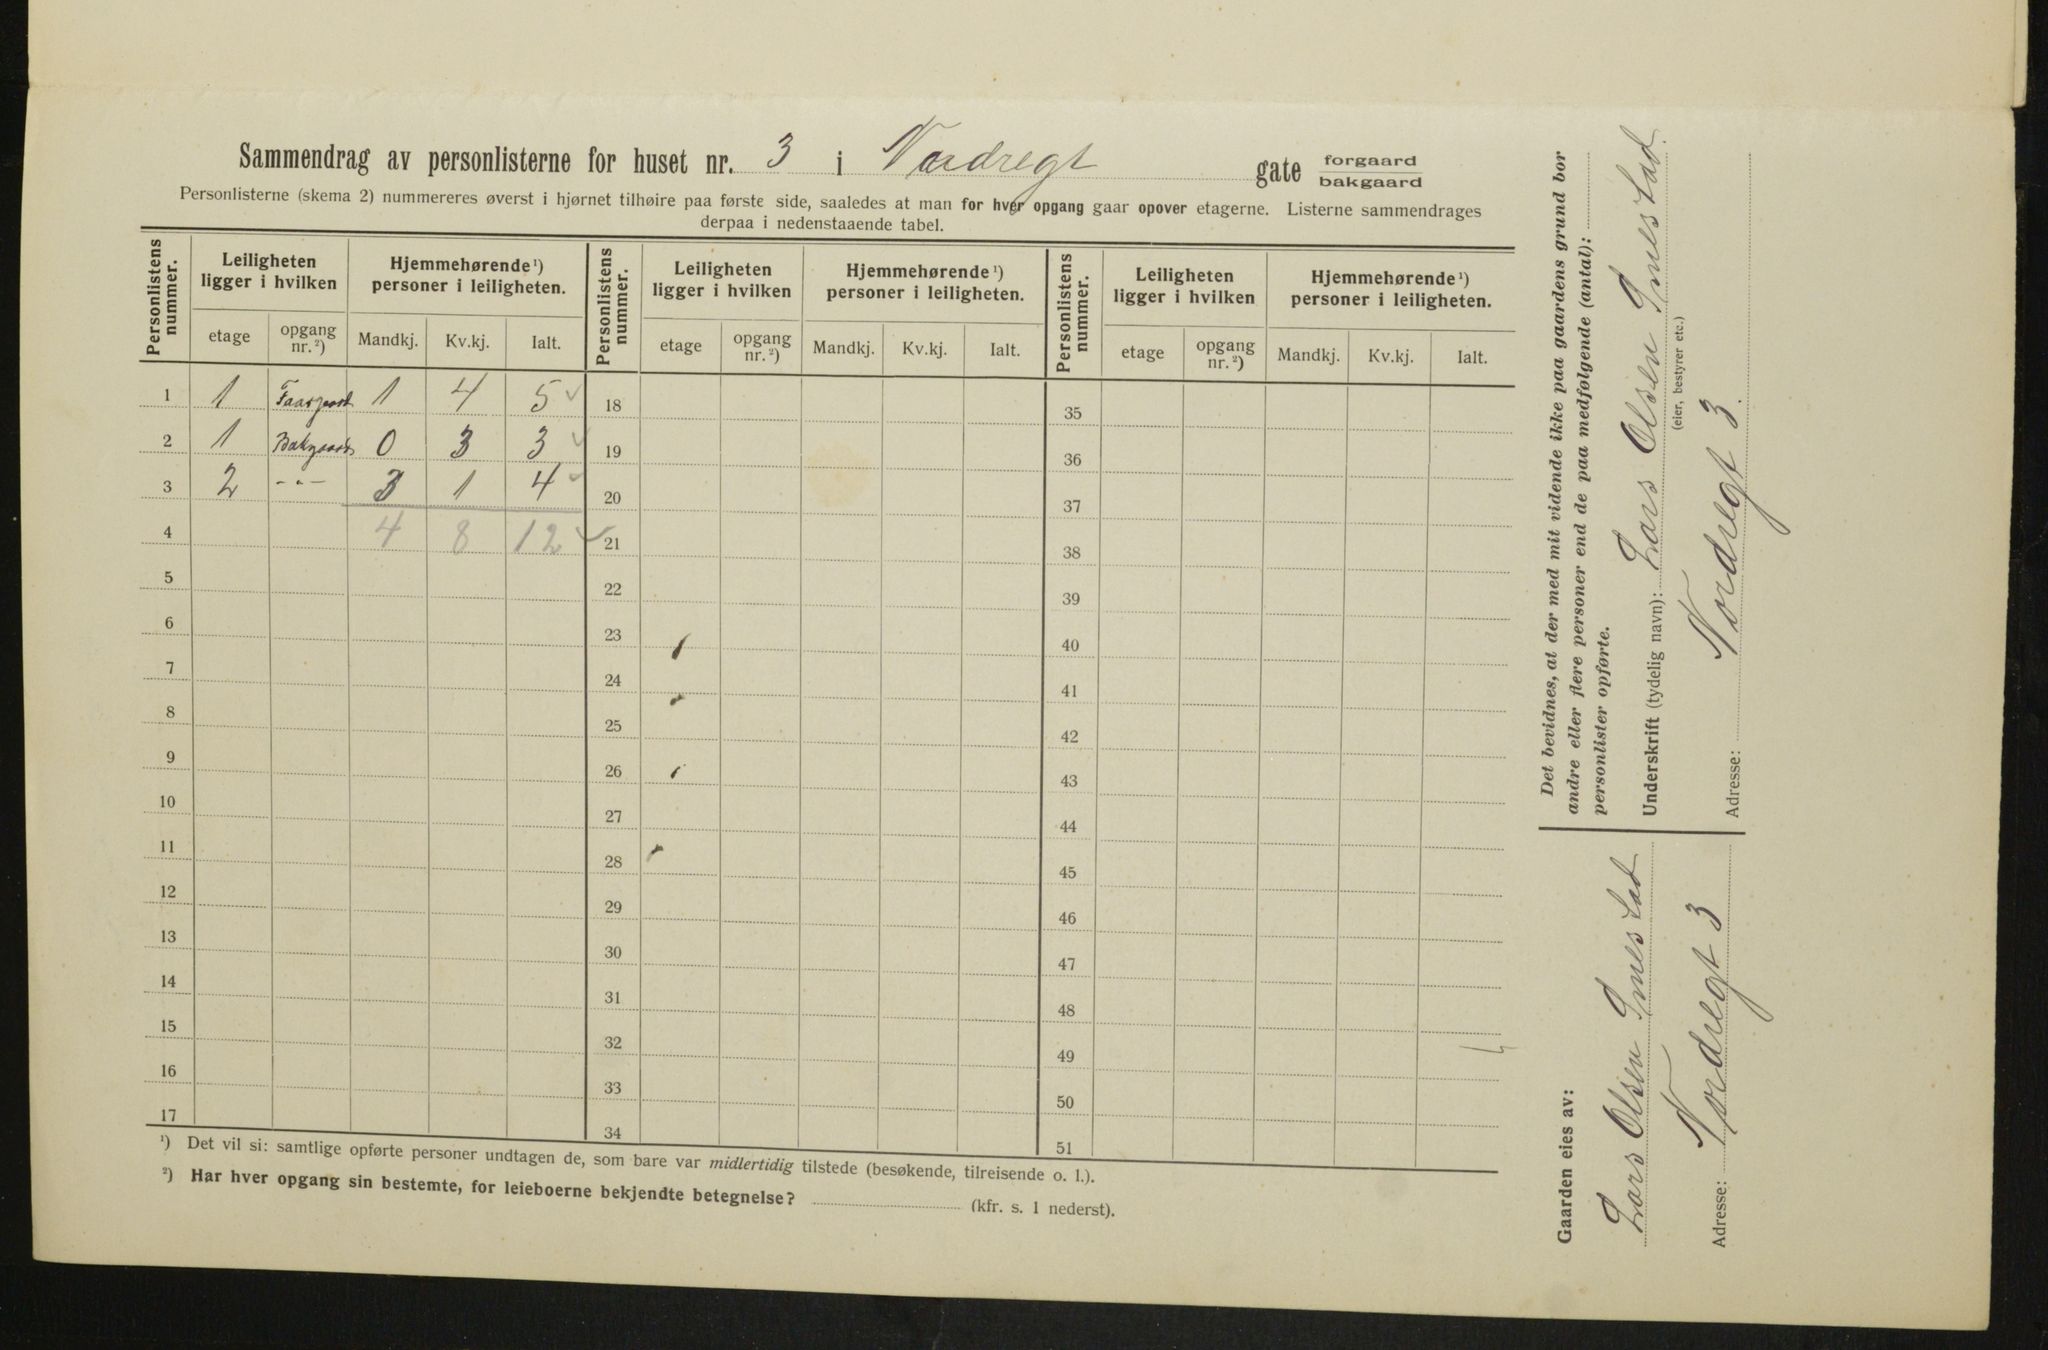 Sammendrag av personlisterne for huset nr. 3 i Nordregt gate forgaard bakgaard
Personlisterne (skema 2) nummereres øverst i hjørnet tilhøire paa første side, saaledes at man for hver opgang gaar opover etagerne. Listerne sammendrages
derpaa i nedenstaaende tabel.
Personlistens nummer. Leiligheten ligger i hvilken Hjemmehørende¹) personer i leiligheten. Personlistens nummer. Leiligheten ligger i hvilken Hjemmehørende¹) personer i leiligheten. Personlistens nummer. Leiligheten ligger i hvilken Hjemmehørende¹) personer i leiligheten.
etage opgang nr.²) Mandkj. Kv.kj. Ialt. etage opgang nr.²) Mandkj. Kv.kj. Ialt. etage opgang nr.²) Mandkj. Kv.kj. Ialt.
1 1 Faargaard 1 4 5 18 35
2 1 Bakgaard 0 3 3 19 36
3 2 -"- 3 1 4 20 37
4 4 8 12 21 38
5 22 39
6 23 40
7 24 41
8 25 42
9 26 43
10 27 44
11 28 45
12 29 46
13 30 47
14 31 48
15 32 49
16 33 50
17 34 51
¹) Det vil si: samtlige opførte personer undtagen de, som bare var midlertidig tilstede (besøkende, tilreisende o. l.).
²) Har hver opgang sin bestemte, for leieboerne bekjendte betegnelse? (kfr. s. 1 nederst).
Det bevidnes, at der med mit vidende ikke paa gaardens grund bor
andre eller flere personer end de paa medfølgende (antal):
personlister opførte.
Underskrift (tydelig navn): Lars Olsen Smestad.
(eier, bestyrer etc.)
Adresse: Nordregt 3.
Gaarden eies av:
Lars Olsen Smestad
Adresse: Nordregt 3